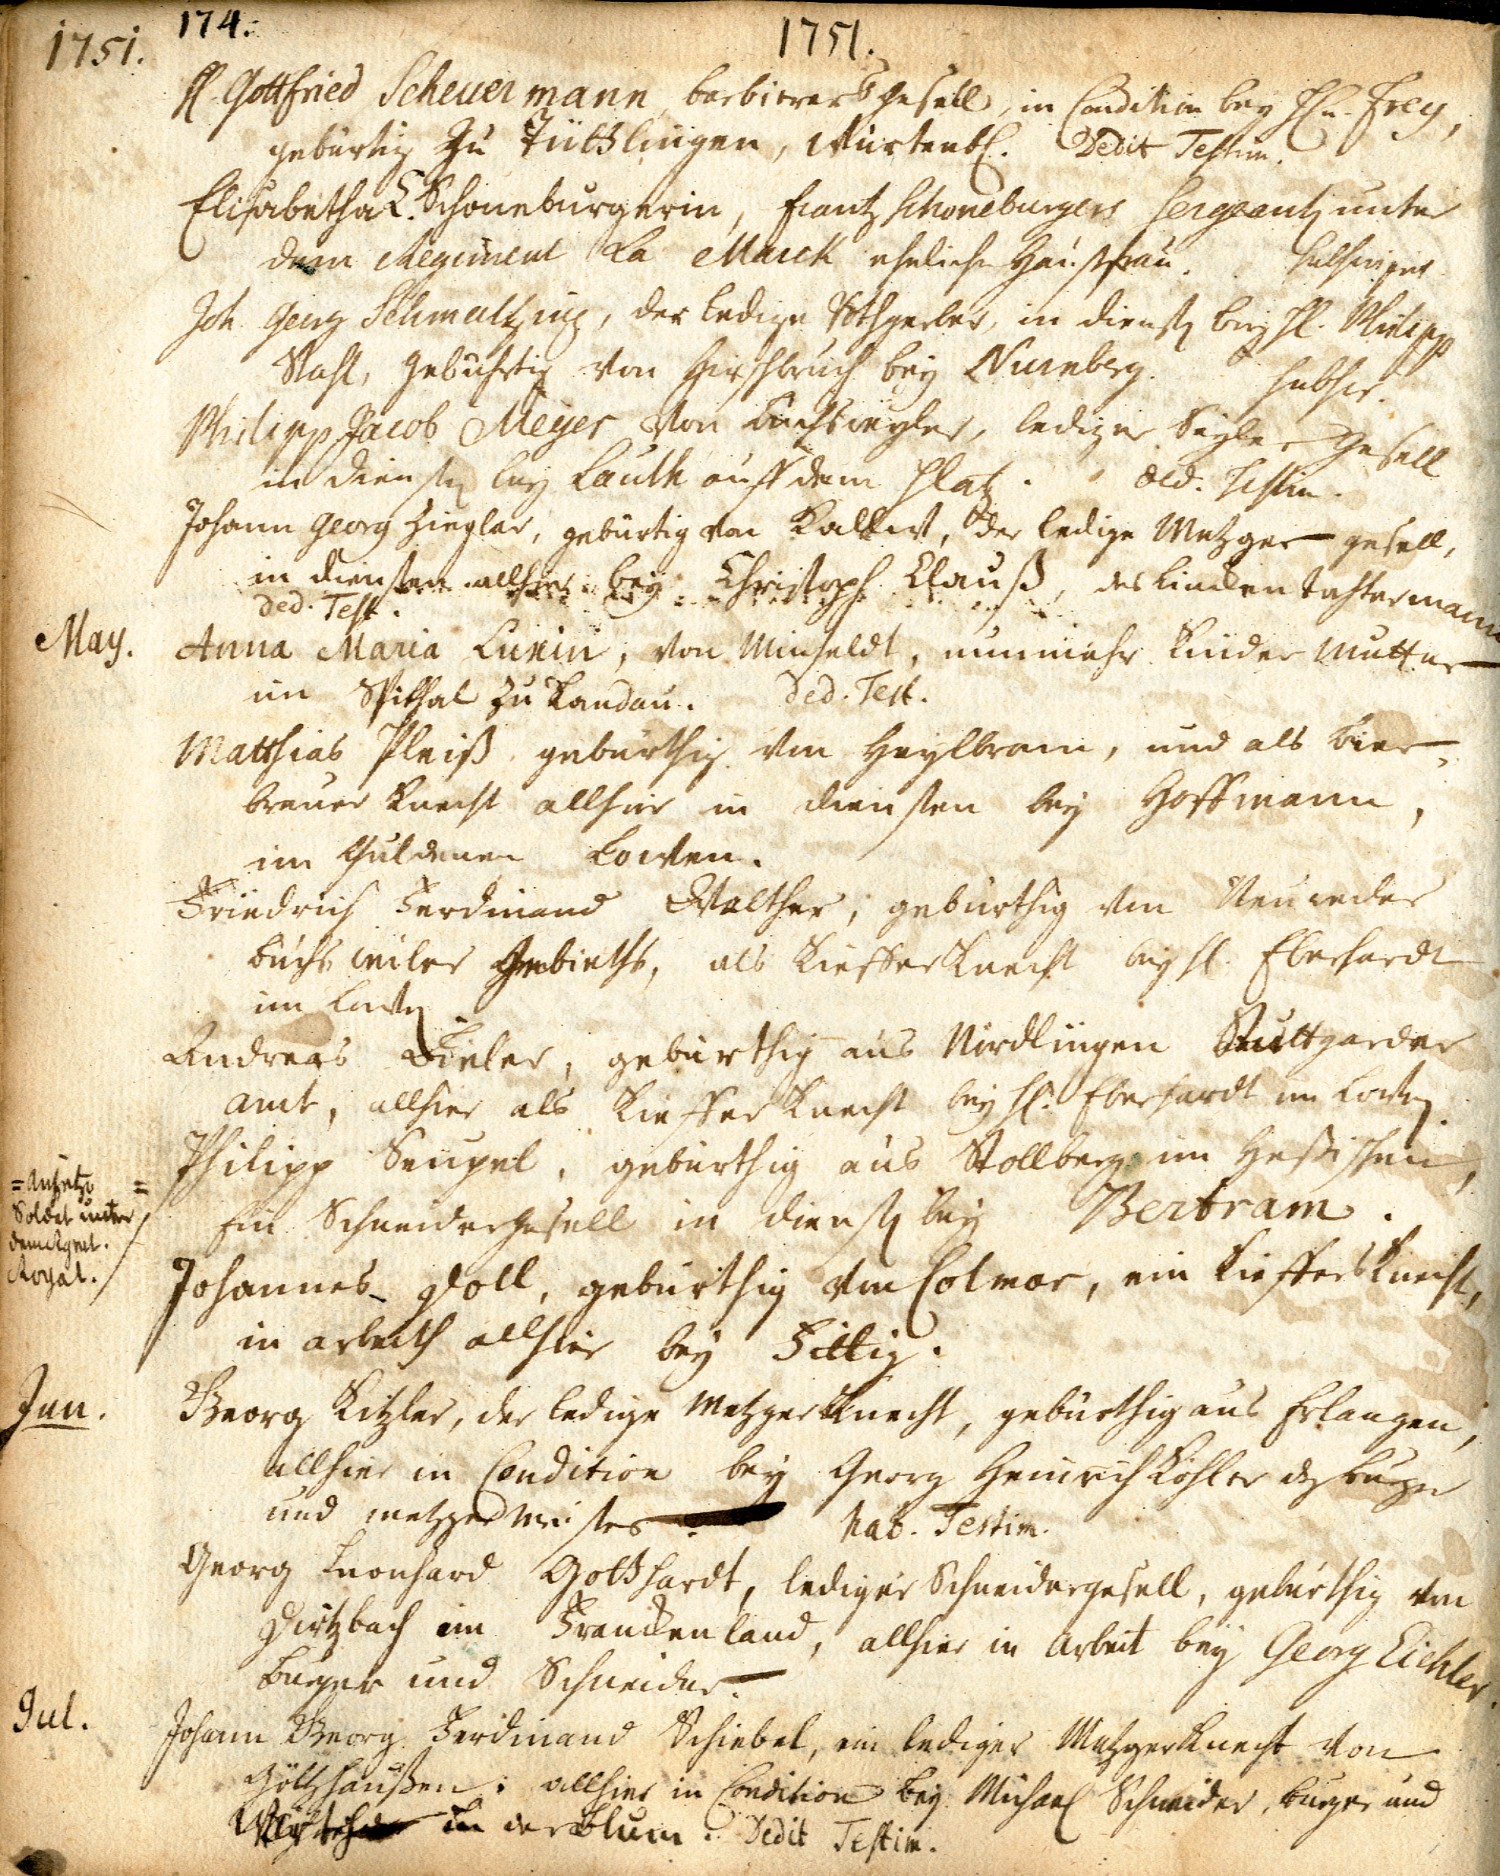 1751.
174.
1751.
H. Gottfried Scheuermann, barbierers gesell, in Condition bey Hln. Frey,
gebürtig zu Tüttlingen, Würtenb. Dedit Testim.
Elisabetha C. Schoneburgerin, Frantz Schoneburgers Sergeantz unter
dem Regiment La Marck eheliche Haußfrau.
Joh. Georg Schmaltzing, der ledige Rothgerber, in diensten bey H. Philipp
Stahl, gebürtig von Hirschbruch bey Nürnberg.
Philipp Jacob Meyer von Buchsweyler, lediger Seyler gesell
in diensten bey Lauth auff dem Platz. ded. Testim.
Johann Georg Ziegler, gebürtig von, der ledige Metzger gesell,
in diensten allhier bey Christoph Clauß, des
ded. Test.
May.
Anna Maria, von Minfeldt, nunmehr Kinder Mutter
im Spithal zu Landau. ded. Test.
Matthias Pleiß gebürthig von Heylbronn, und als bier-
brauer Knecht allhier in diensten bey Hoffmann,
im Guldenen Lowen.
Friedrich Ferdinand Walther, gebürthig von Neuweiler
Buchsweiler Gebieths, als Kieffer Knecht bey H. Eberhardt
im Lowen
Andreas, gebürthig aus Nirdlingen Stuttgarder
amt, allhier als Kieffer Knecht bey H. Eberhardt im Lowen.
Philipp Seupel, gebürthig aus Stollberg im Heßischen,
Ein Schneidergesell in diensten bey Bertram.
=Anjetzo=
Soldat unter
dem Rgmt.
Royal.
Johannes Doll, gebürthig von Colmar, ein Kieffersknecht,
in arbeith allhier bey Fittig.
Jun.
Georg Kitzler, der ledige Metzgerknecht, gebürthig aus Erlangen,
allhier in Condition bey Georg Heinrich Köhler des burger
und metzger Meister. hab. Testim.
Georg Leonhard Gotthardt, lediger Schneidergesell, gebürthig von
Dirtzbach im Franckenland, allhier in Arbeit bey Georg Eichler.
burger und Schneider.
Jul.
Johann Georg Ferdinand Schiebel, ein lediger Metzgerknecht von
Göltzhaußen: allhier in Condition bey Michael Schneider, burger und
in der Blum. Dedit Testim.